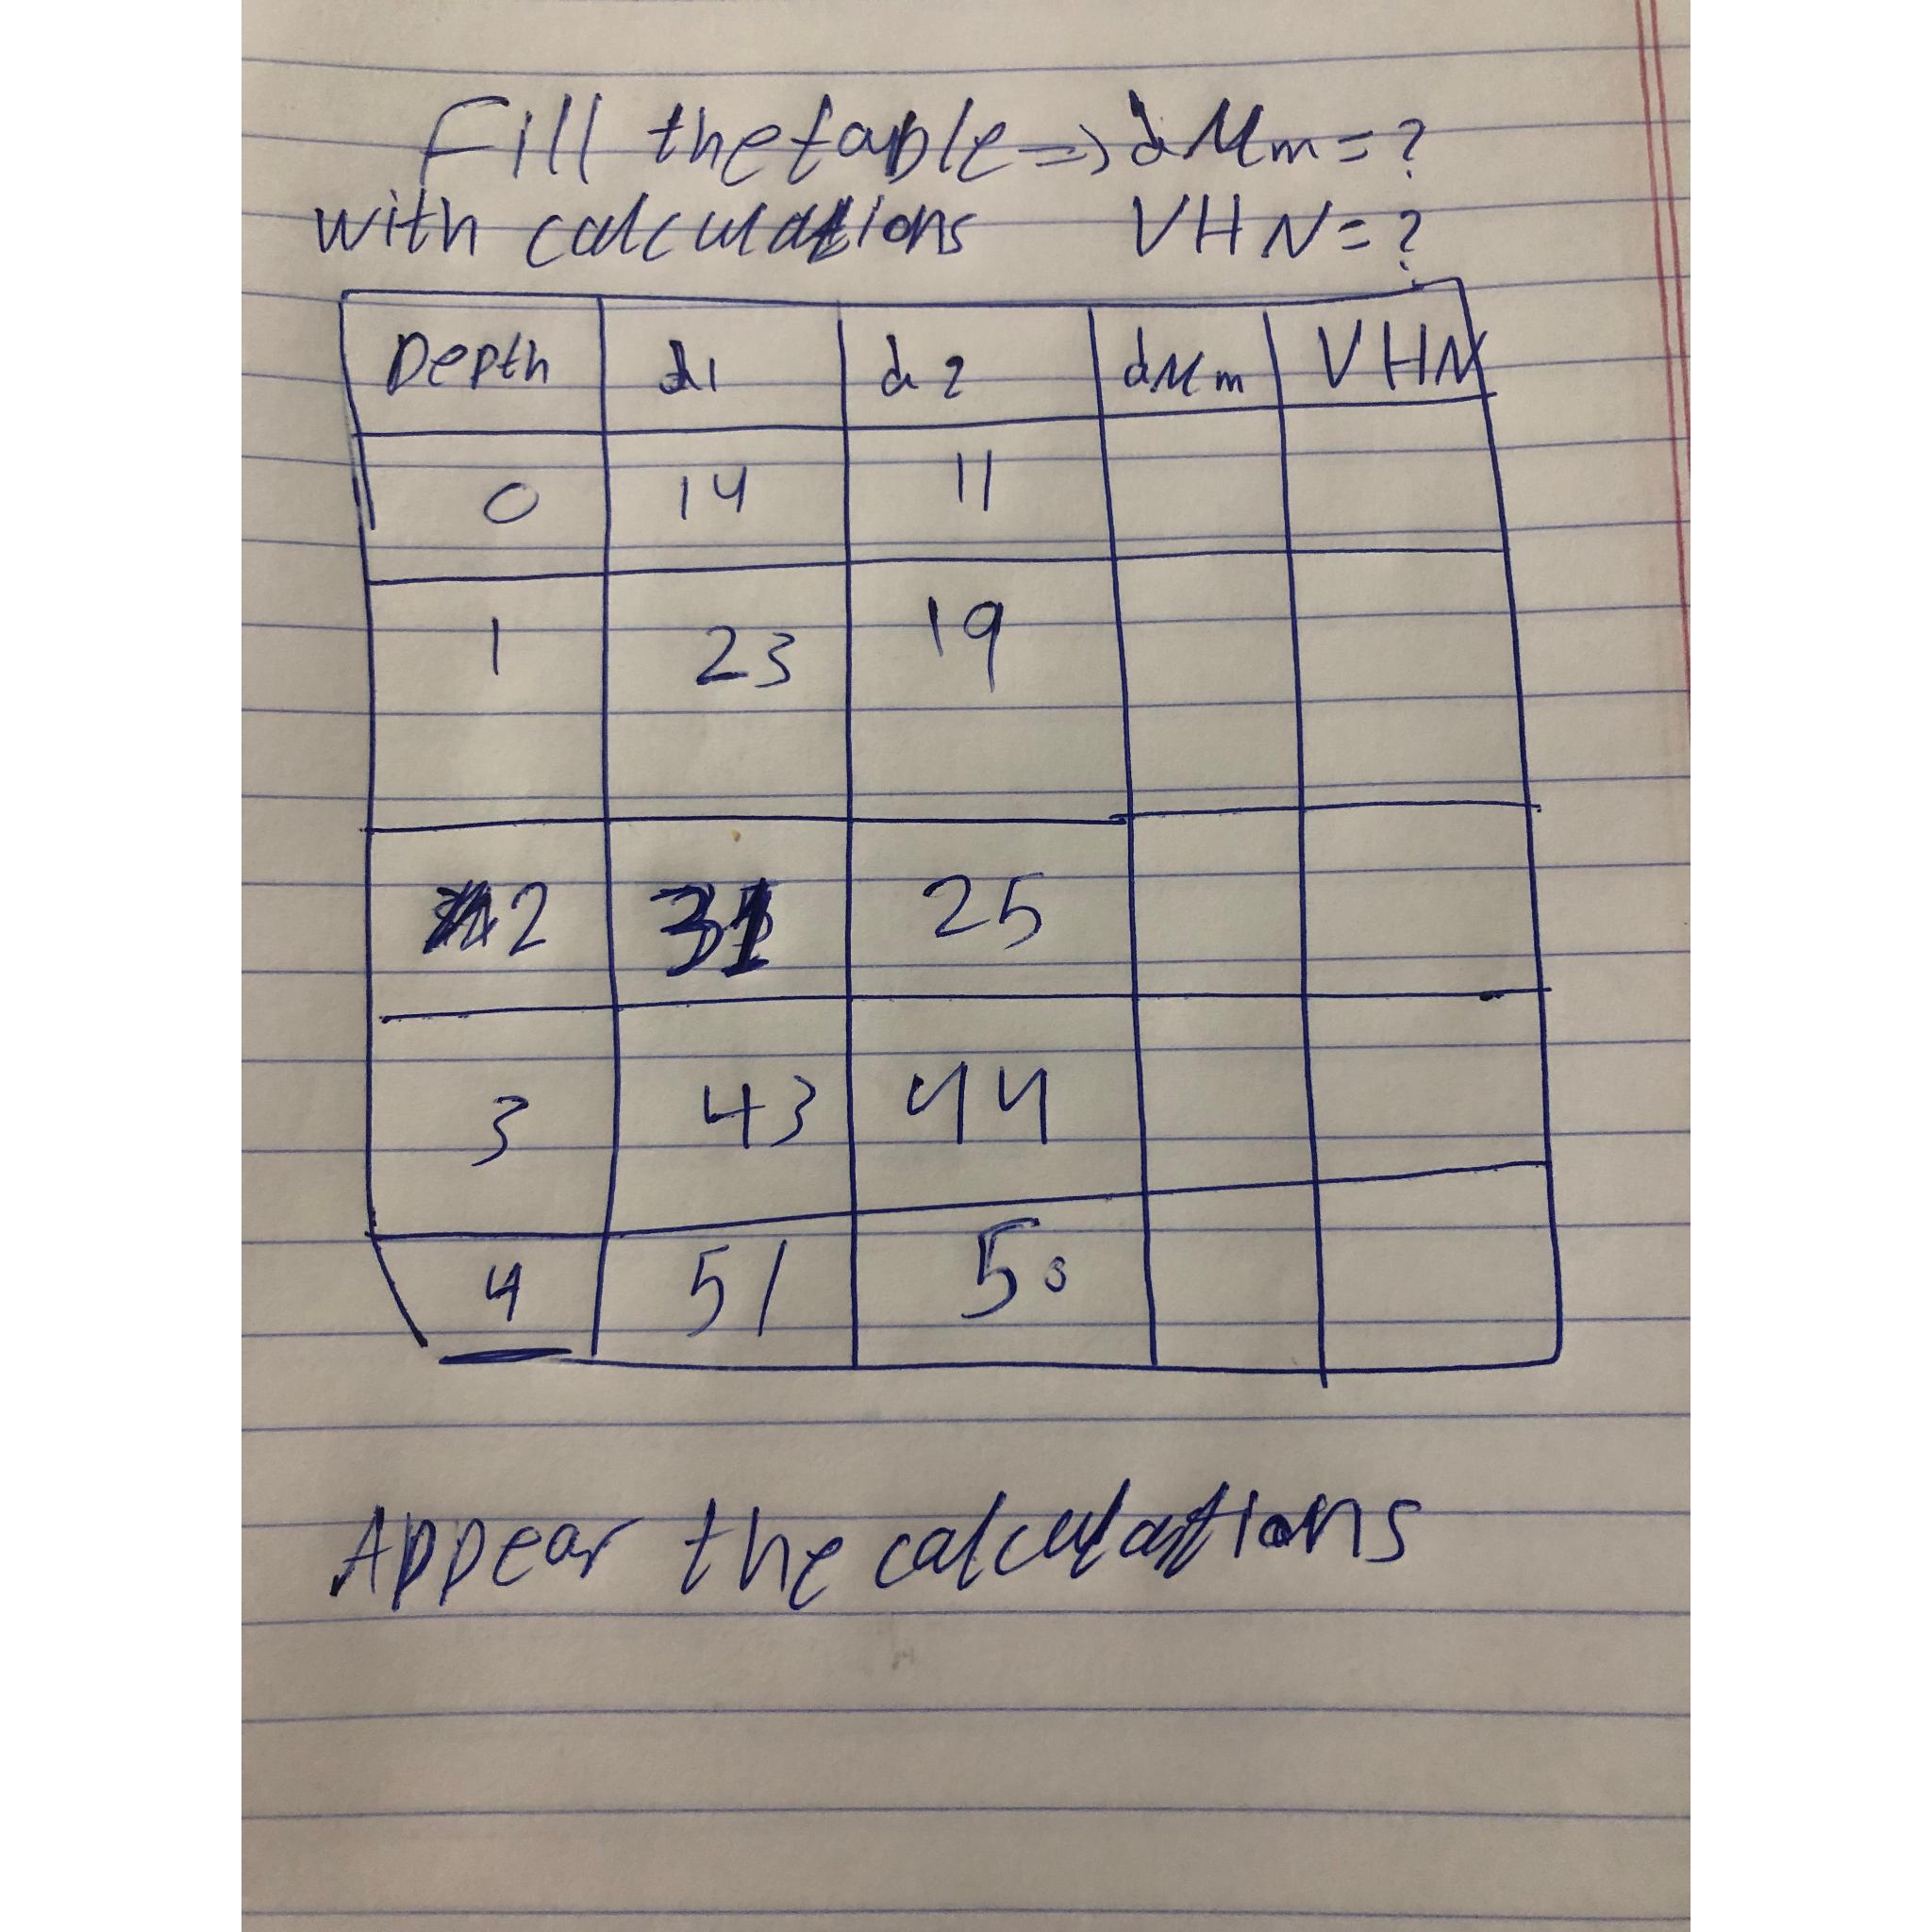 Fill the table => dMm = ?
with calculations VHN = ?
Depth d1 d2 dMm VHN
0 14 11
1 23 19
2 31 25
3 43 44
4 51 50
Appear the calculations